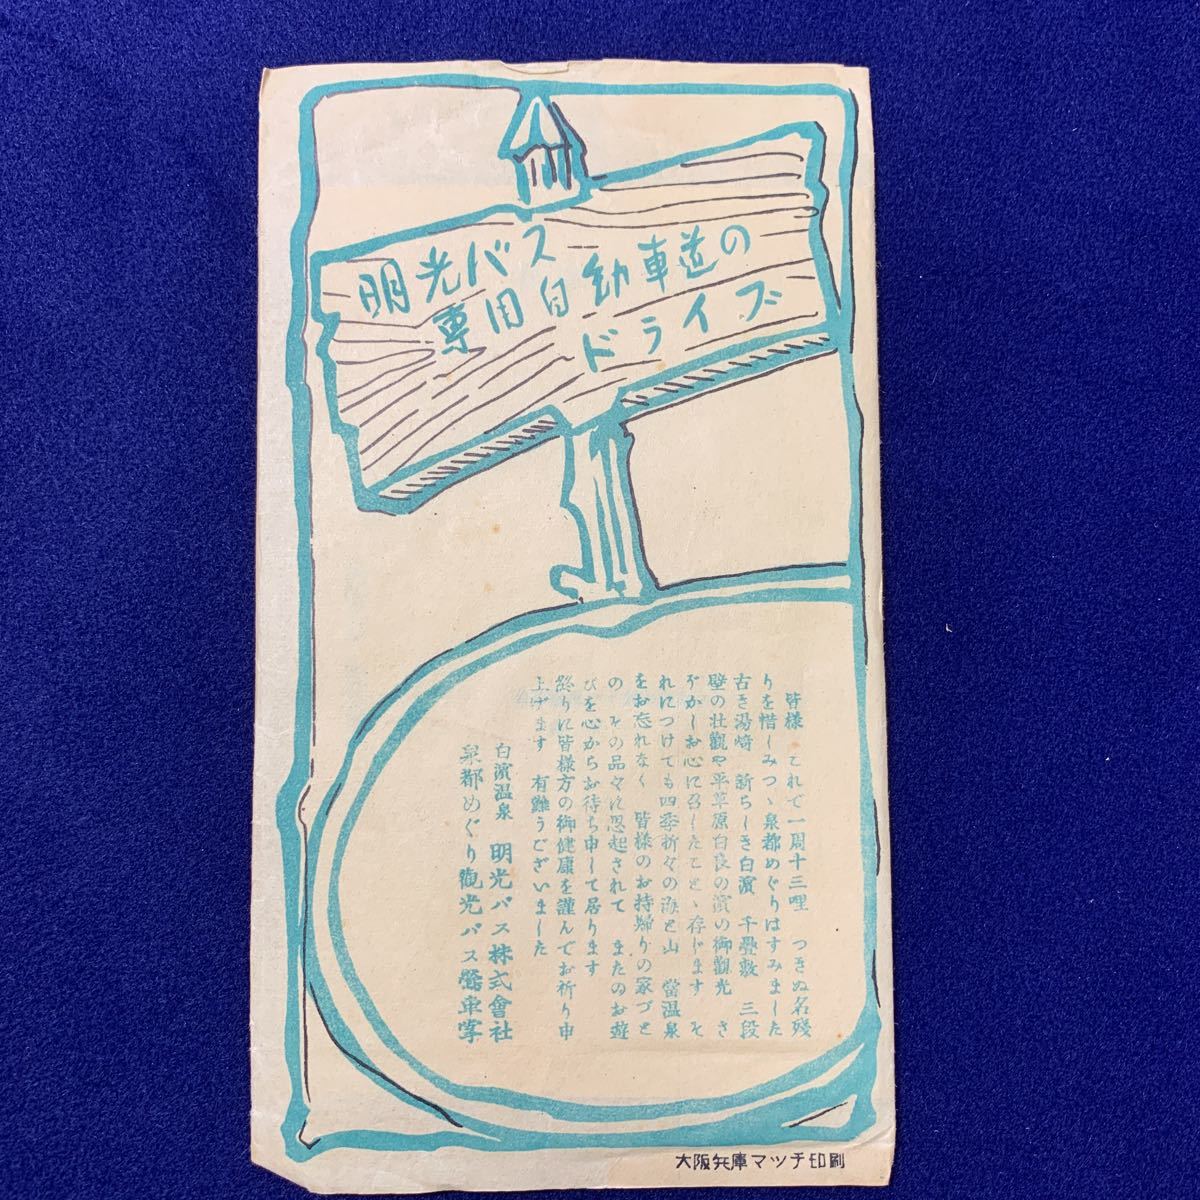 明光バス
専用自動車道の
ドライブ
皆様　これで一周十三哩　つきぬ名殘
りを惜しみつゝ泉都めぐりはすみました
古き湯崎　新らしき白濱　千疊敷　三段
壁の壮觀や平草原白良の濱の御觀光　さ
ぞかしお心に召したことゝ存じます　そ
れにつけても四季折々の海と山　當温泉
をお忘れなく　皆様のお持歸りの家づと
の　その品々に思起されて　またのお遊
びを心からお待ち申して居ります
終りに皆様方の御健康を謹んでお祈り申
上げます　有難うございました
白濱温泉　明光バス株式會社
泉都めぐり觀光バス 車掌
大阪兵庫マッチ印刷